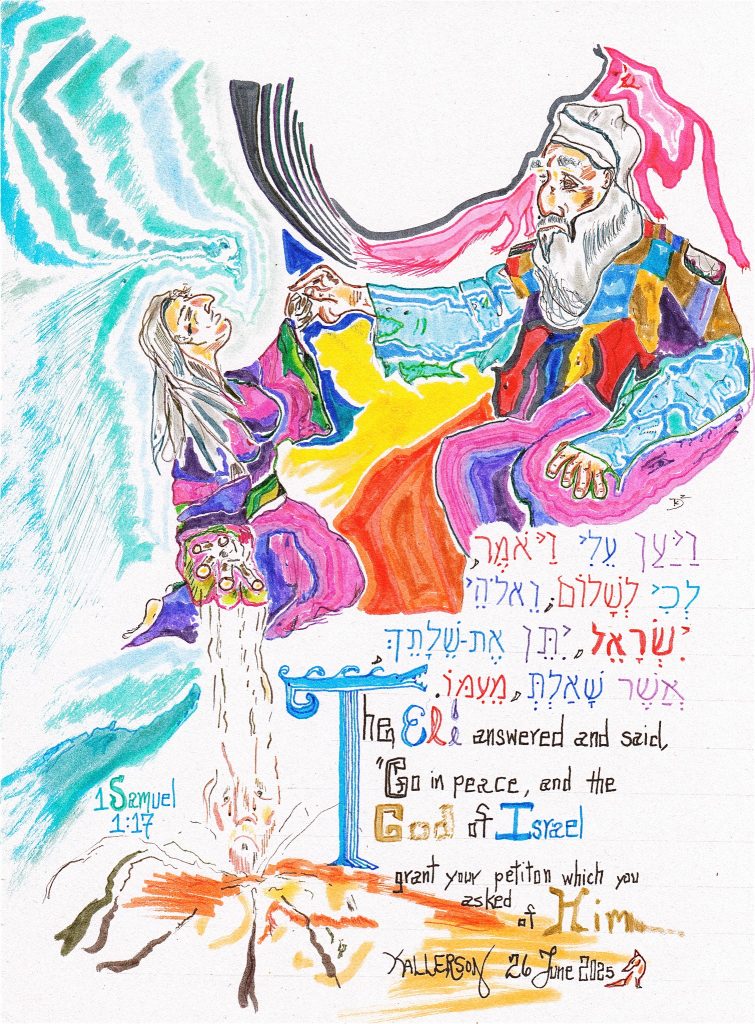 וַיַּעַן עֵלִי וַיֹּאמֶר,
לְכִי לְשָׁלוֹם; וֵאלֹהֵי
יִשְׂרָאֵל, יִתֵּן אֶת-שֵׁלָתֵךְ,
אֲשֶׁר שָׁאַלְתְּ, מֵעִמּוֹ.
The, Eli answered and said,
"Go in peace, and the
God of Israel
grant your petiton which you
asked
of Him
1 Samuel
1:17
KALLERSON 26 June 2025